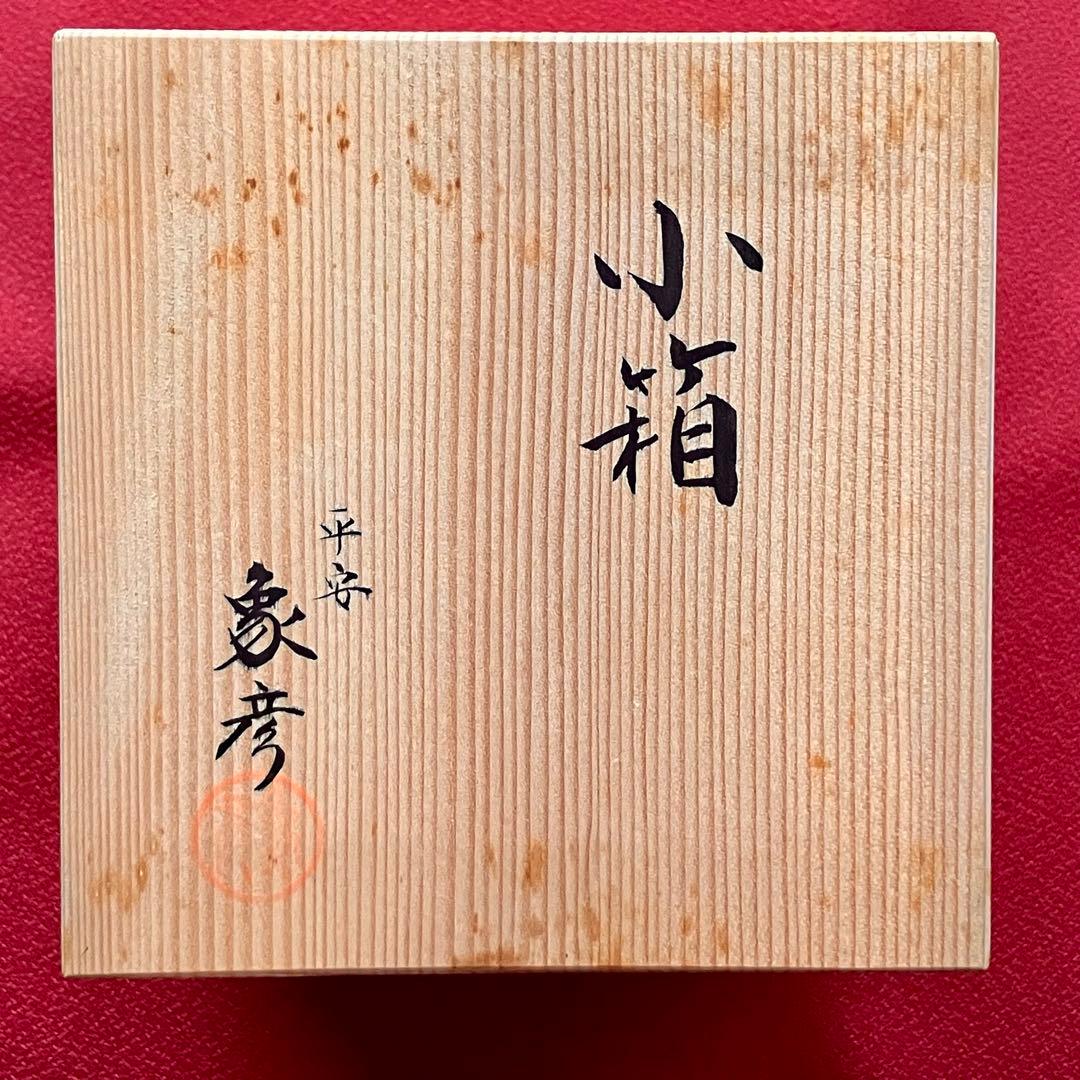 小箱
平安
象彦